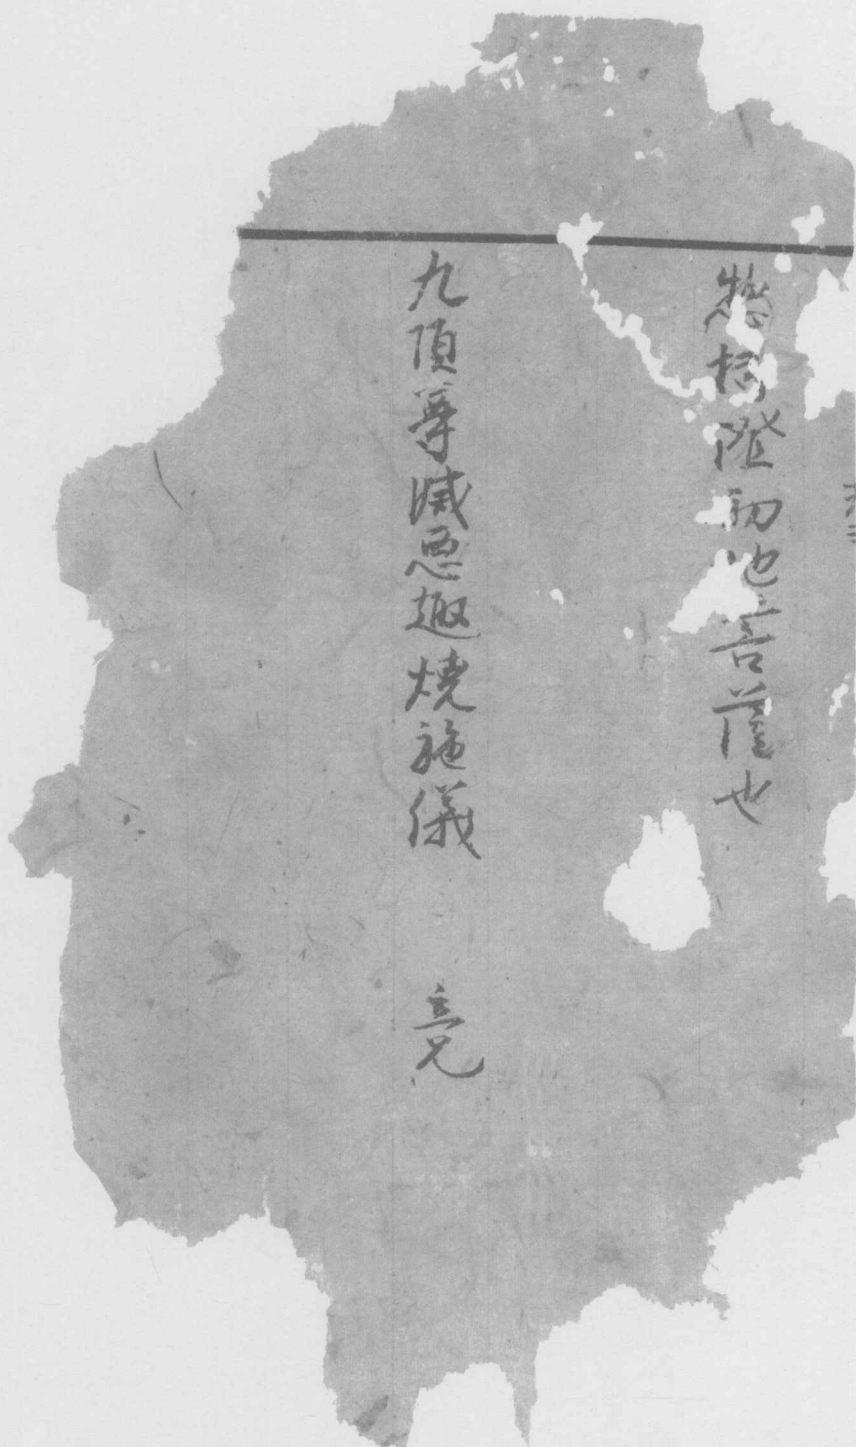 想𢭏證初地言薩也
九頂尊滅惡趣燒施儀 竟